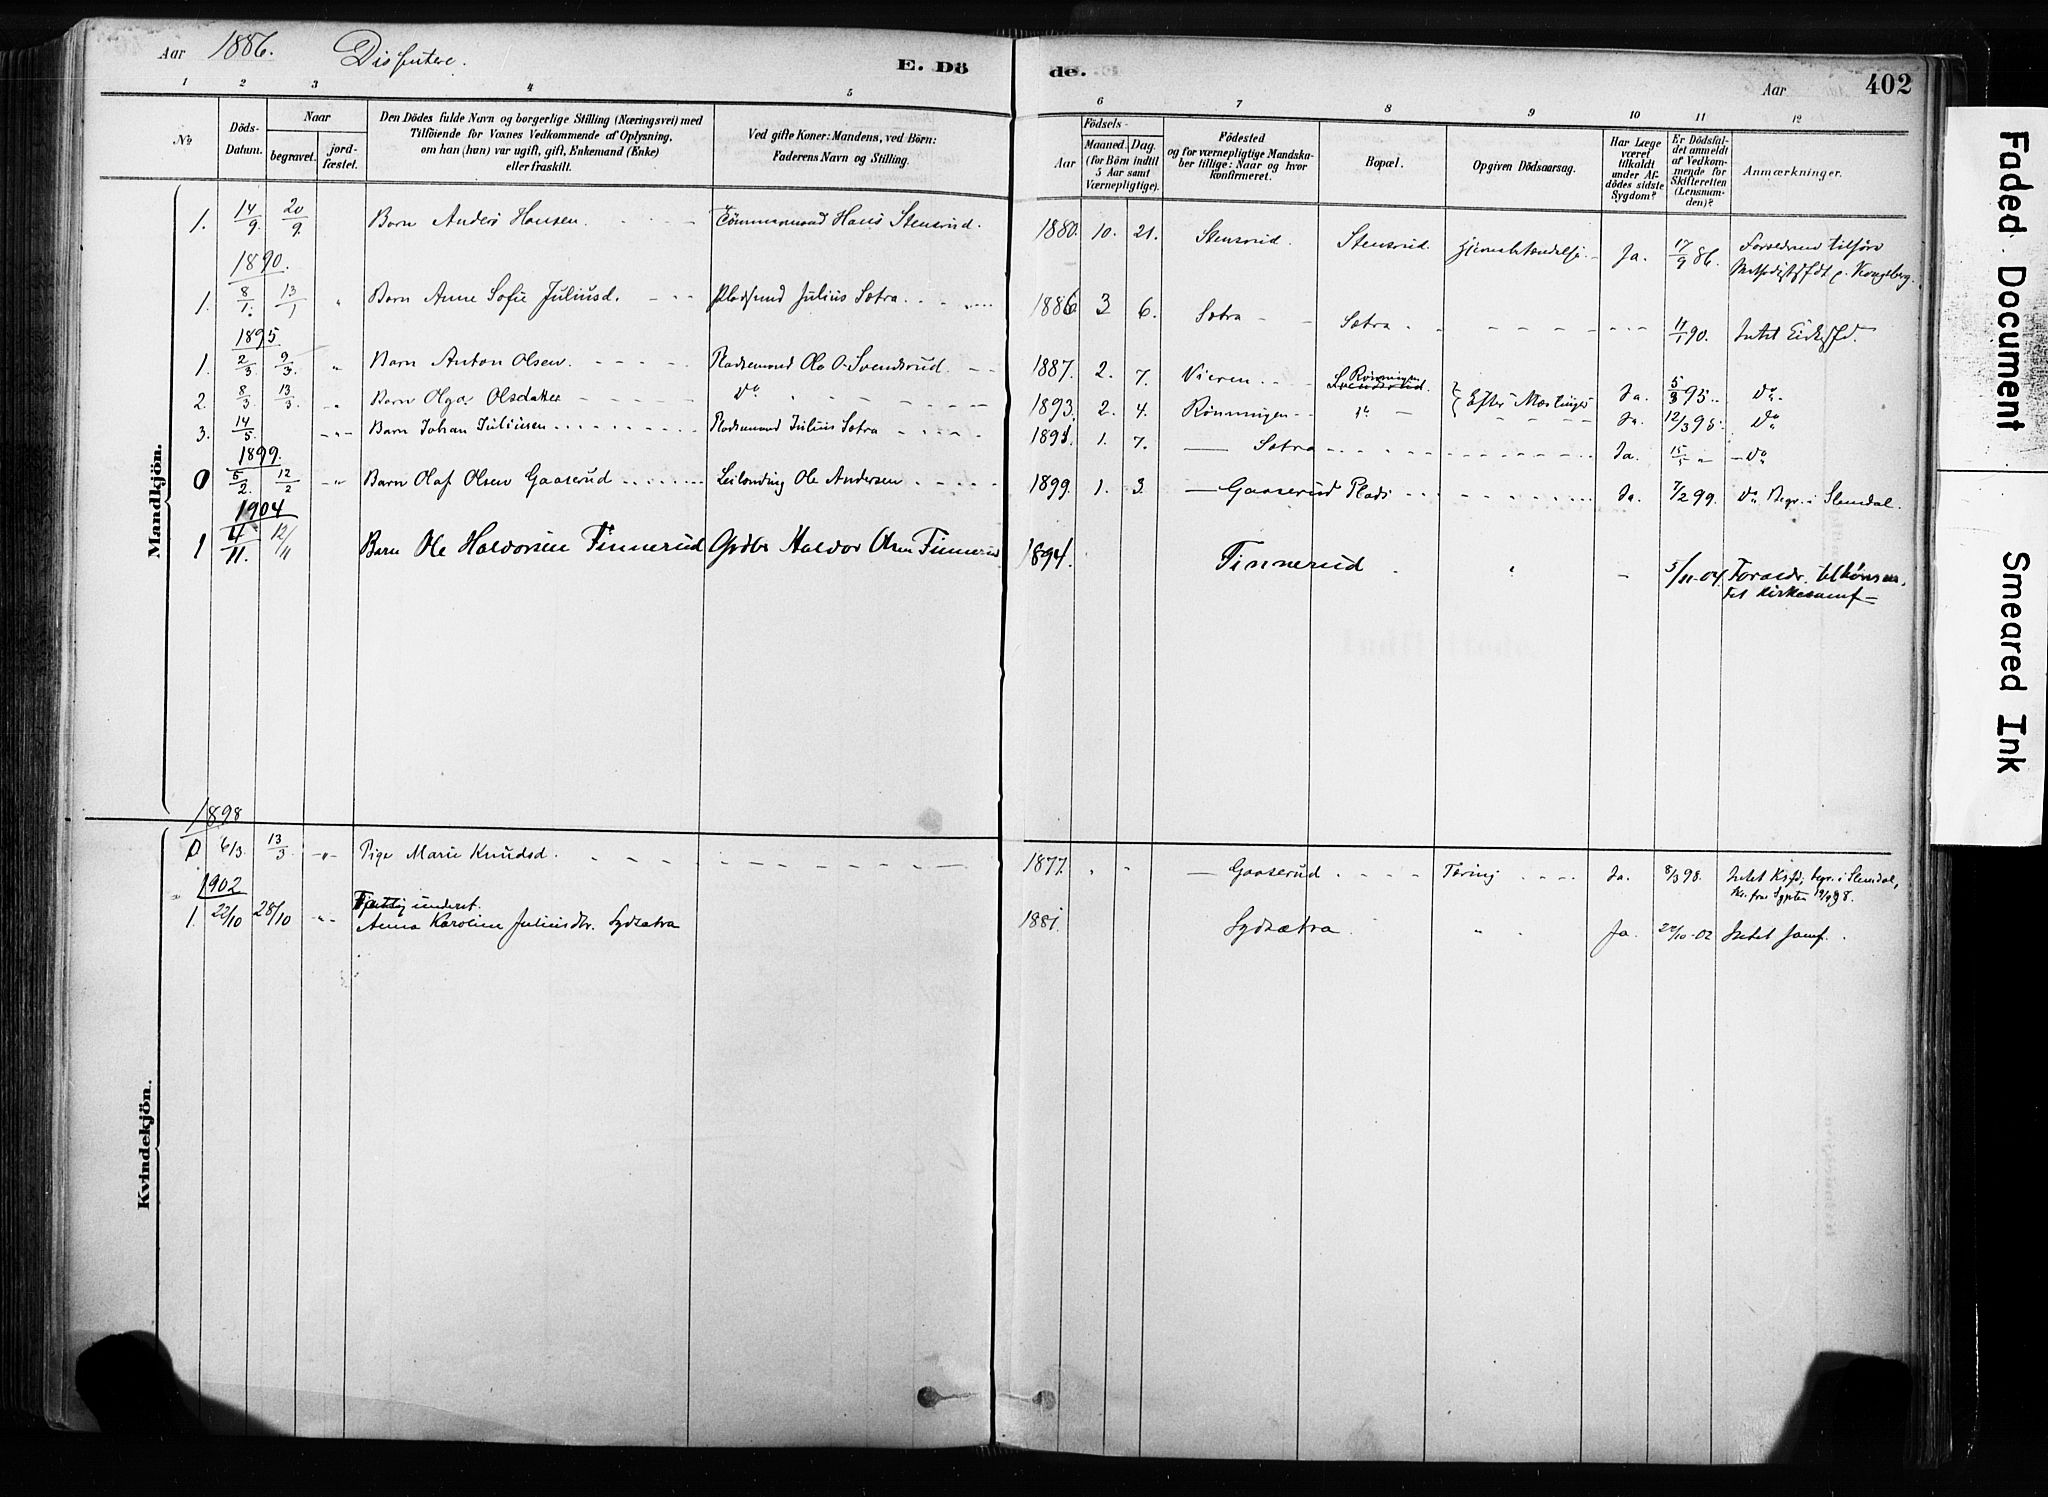 Aar 1886. Disputere. E. Dö de. Aar 402
1 2 3 4 5 6 7 8 9 10 11 12
No
Döds-Datum.
Naar
begravet.
jord-fæstet.
Den Dödes fulde Navn og borgerlige Stilling (Næringsvei) med
Tilföiende for Voxnes Vedkommende af Oplysning,
om han (hun) var ugift, gift, Enkemand (Enke)
eller fraskilt.
Ved gifte Koner: Mandens, ved Börn:
Faderens Navn og Stilling.
Födsels-
Aar
Maaned. Dag.
(for Börn indtil
5 Aar samt
Værnepligtige).
Födested
og for værnepligtige Mandska-
ber tillige: Naar og hvor
konfirmeret.
Bopæl.
Opgiven Dödsaarsag.
Har Læge
været
tilkaldt
under Af-
dödes sidste
Sygdom?
Er Dödsfal-
det anmeldt
af Vedkom-
mende for
Skifteretten
(Lensman-
den)?
Anmærkninger.
Mandkjön.
1. 14/9. 20/9. Barn Anders Hansen Tömmermand Hans Stensrud. 1880. 10. 21. Stensrud. Stensrud. Ja. 17/9 86. Forældrene tilhøre
p. Kongsberg.
1890.
1. 8/1. 13/1 " Barn Anne Sofie Juliusd. Pladsmd Julius Sætra 1886 3 6. Sætra Sætra 11/1 90. Intet
1895.
1. 2/3 9/3. " Barn Anton Olsen. Pladsmand Ole O. Svendsrud. 1887. 2. 7. Vieren. Rønningen Svendsrud. Efter Mæslinger Ja. 5/3 95. do
2. 8/3. 13/3. " Barn Olga Olsdatter do 1893. 2. 4. Rønningen Ja. 12/3 95. do
3. 14/5. " Barn Johan Juliusen Pladsmand Julius Sætra 1891. 1. 7. Sætra Ja. 15/5 " do
1899.
0 5/2. 12/2 " Barn Olaf Olsen Gaaserud Leilænding Ole Andersen 1899. 1. 3. Gaaserud Plads Ja. 7/2 99. do Begr. i Slemdal.
1904
1 4/11. 12/11 Barn Ole Haldorsen Finnerud Gdbr Haldor Olsen Finnerud 1894. Finnerud 5/11-04. Forædr. tilhører
Kirkesamf
1898
Kvindekjön.
0 6/3. 13/3. " Pige Marie Knudsd. 1877. " " Gaaserud Tæring Ja. 8/3 98. Intet begr. i Slemdal,
1902
1. 22/10 28/10 " underst.
Anna Karoline Juliusdtr. Sydsætra 1881. Sydsætra. " Ja. 22/10-02 Intet samf.
Faded Document
Smeared Ink